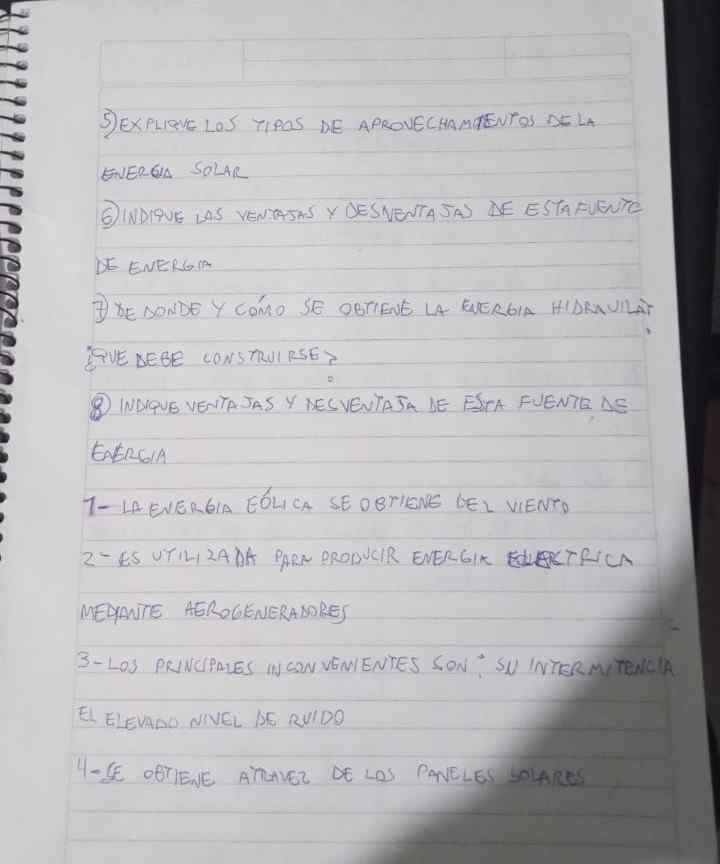 5) EXPLIQUE LOS TIPOS DE APROVECHAMIENTOS DE LA
ENERGIA SOLAR
6) INDIQUE LAS VENTAJAS Y DESVENTAJAS DE ESTA FUENTE
DE ENERGIA
7) DE DONDE Y CÓMO SE OBTIENE LA ENERGIA
¿QUE DEBE CONSTRUIRSE?
8) INDIQUE VENTAJAS Y DESVENTAJA DE ESTA FUENTE DE
ENERGIA
1- LA ENERGIA EÓLICA SE OBTIENE DEL VIENTO
2- ES UTILIZADA PARA PRODUCIR ENERGIA
MEDIANTE AEROGENERADORES
3- LOS PRINCIPALES INCONVENIENTES SON: SU INTERMITENCIA
EL ELEVADO NIVEL DE RUIDO
4- SE OBTIENE ATRAVEZ DE LOS PANELES SOLARES